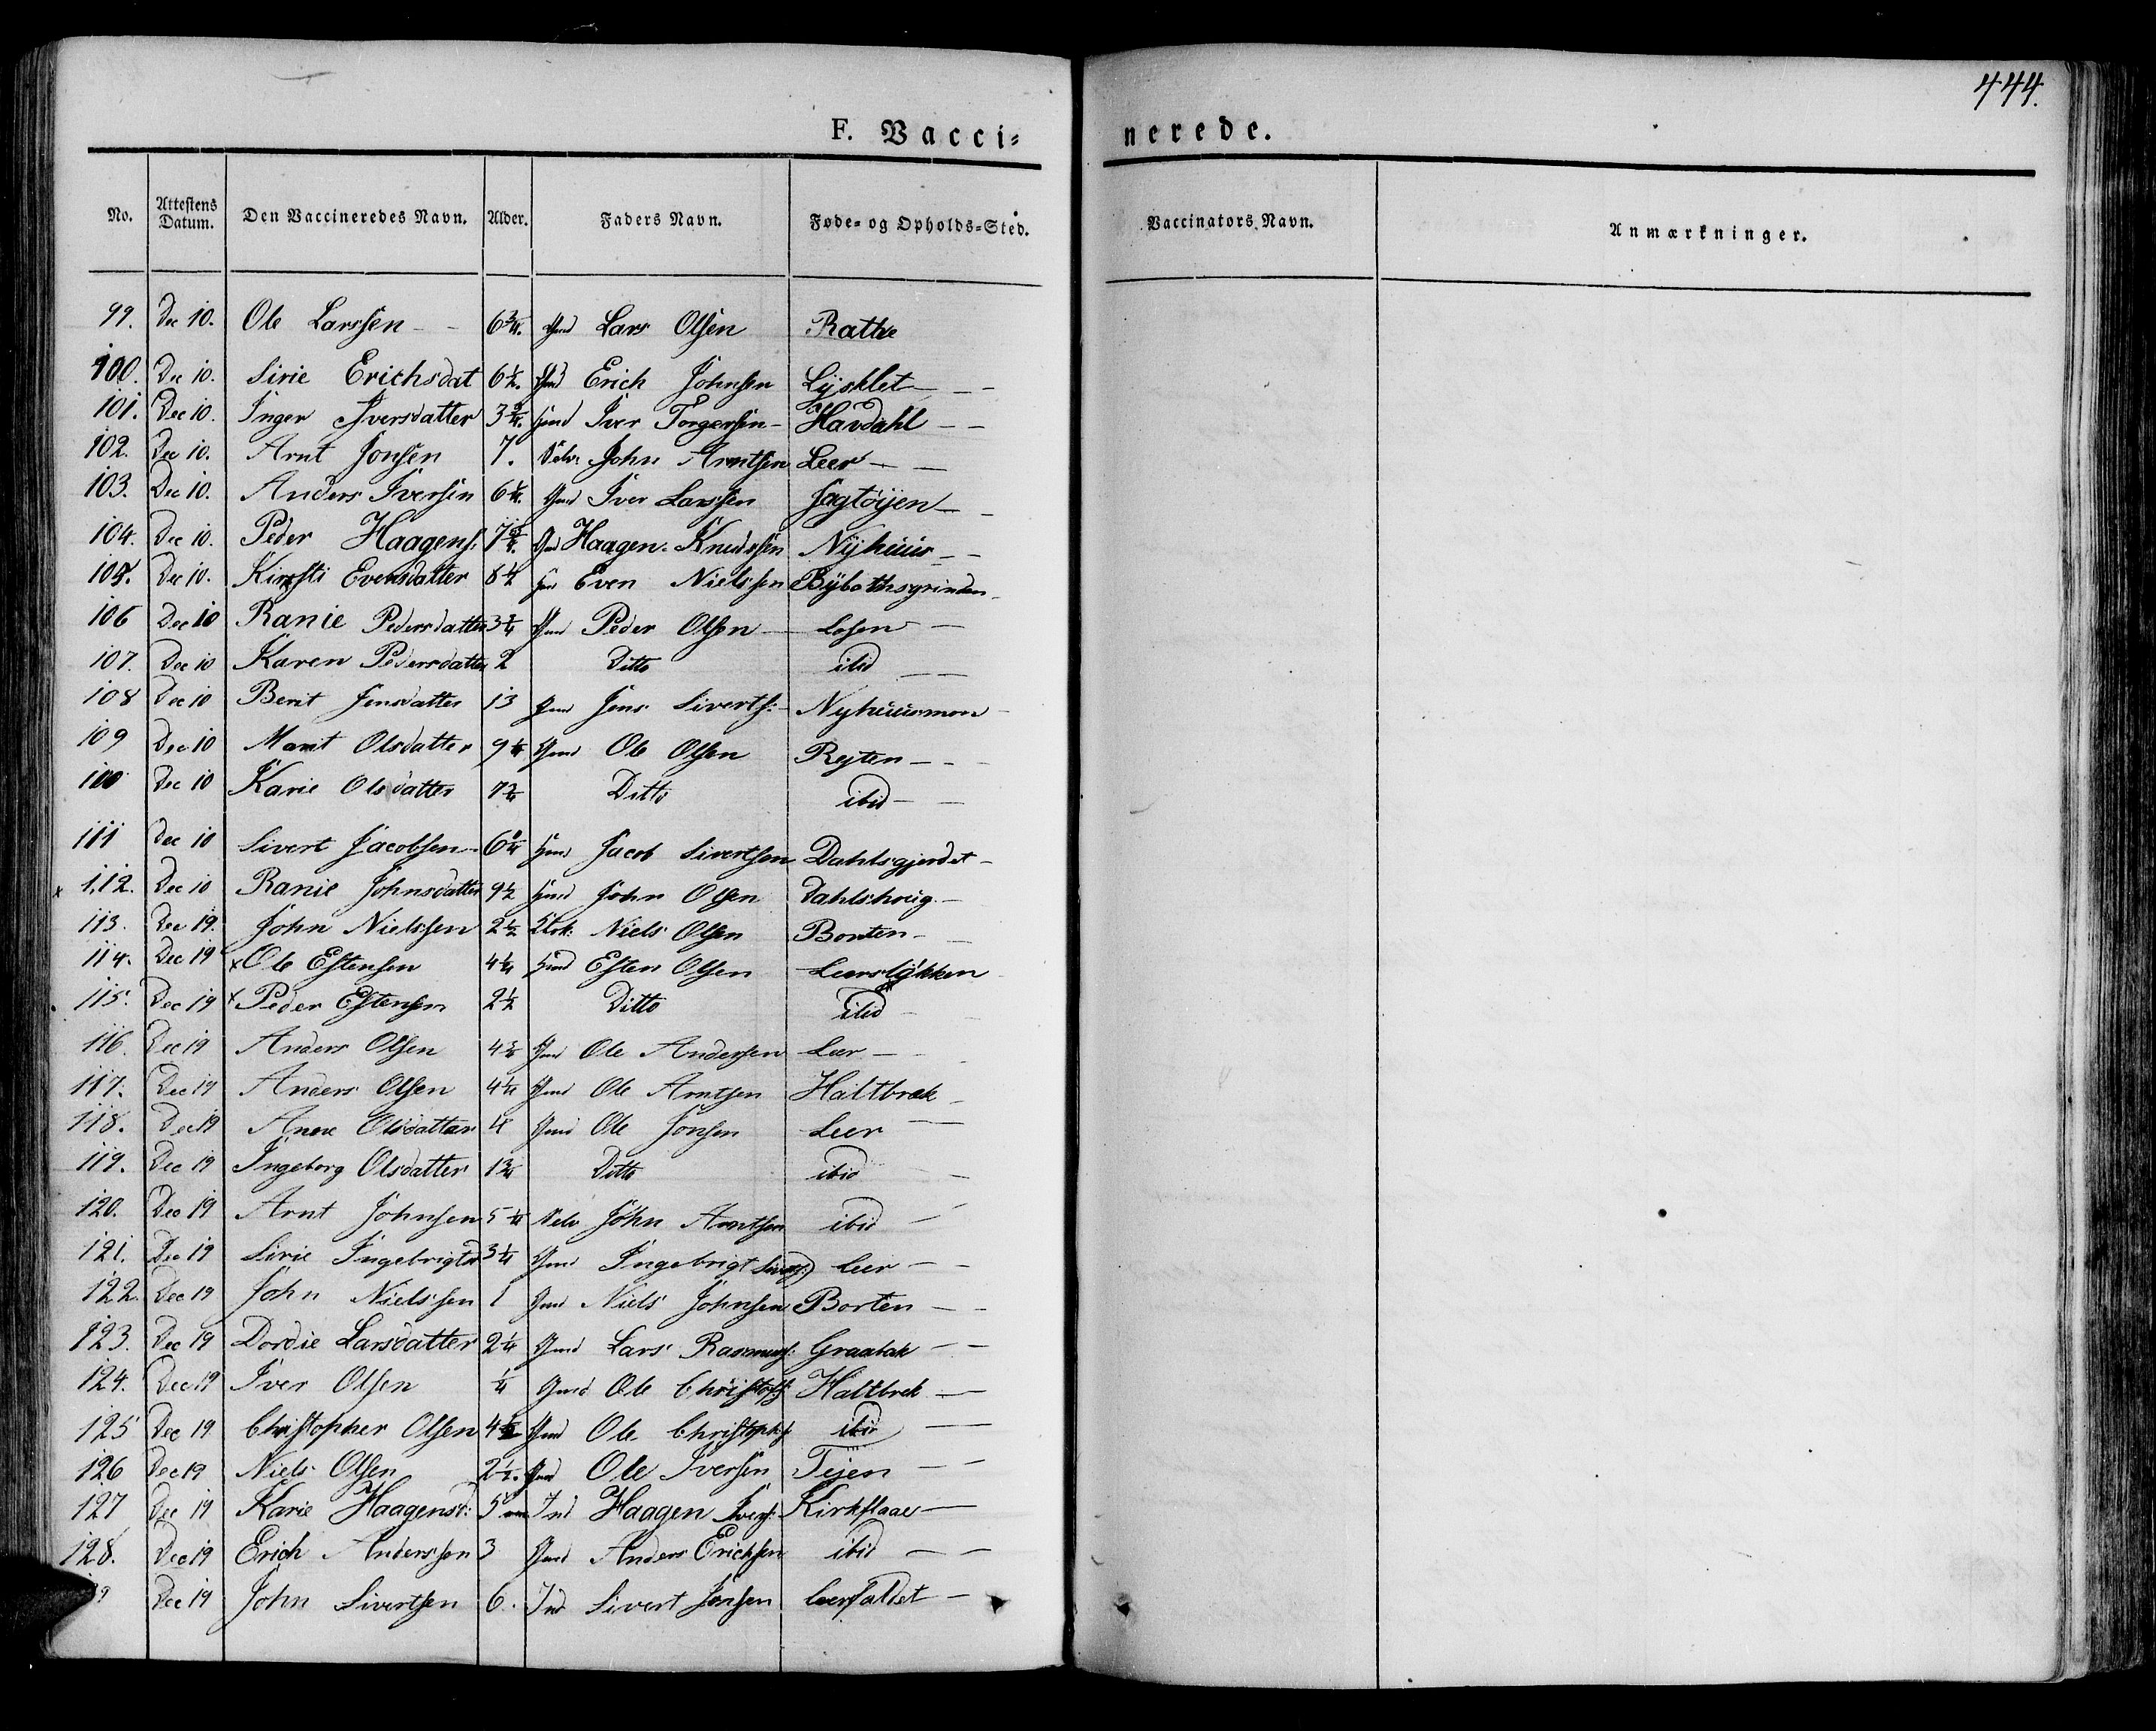 444.
F. Vacci=
nerede.
No. Attestens Datum. Den Vaccineredes Navn. Alder. Faders Navn. Føde= og Opholds=Sted. Vaccinators Navn. Anmærkninger.
99. Dec 10. Ole Larssen 6 3/4. Lars Olsen Rathe
100. Dec 10. Sirie Erichsdat 6 1/2. Erich Johnsen Lysklet
101. Dec 10. Inger Iversdatter 3 3/4. Huusmd Iver Torgersen Havdahl
102. Dec 10. Arnt Jonsen 7. Selv: John Arntsen Leer
103. Dec 10. Anders Iversen 6 1/4. Gmd Iver Larssen Fagtøyen
104. Dec 10. Peder Haagens: 7 3/4. Gmd Haagen Knudssen Nÿhuus
105. Dec 10. Kirsti Evensdatter 8 1/2 Even Nielssen Bÿbothsgrinden
106 Dec 10 Ranie Pedersdatter 3 3/4 Gmd Peder Olsen Losen
107. Dec 10 Karen Pedersdatter 2 Ditto ibid
108 Dec 10 Berit Jensdatter 13 Gmd Jens Siverts: Nyhuusmoen
109 Dec 10 Marit Olsdatter 9 1/4 Gmd Ole Olsen Rejten
110 Dec 10 Karie Olsdatter 7 3/4 Ditto ibid
111 Dec 10 Sivert Jacobsen 6 1/4 Hmd Jacob Sivertsen Dahlsgjerdet
x 112. Dec 10 Ranie Johnsdatter 9 1/2 Hmd John Olsen Dahlshoug
113. Dec 19. John Nielssen 2 1/2 Niels Olsen Borten
114. Dec 19 x Ole Estensen 4 1/4 Hmd Esten Olsen Leersløkken
115. Dec 19 x Peder Estensen 2 1/2 Ditto ibid
116. Dec 19 Anders Olsen 4 3/4 Gmd Ole Andersen Leer
117. Dec 19 Anders Olsen 4 1/4 Gmd Ole Arntsen Haltbrek
118. Dec 19 Anne Olsdatter 4 Gmd Ole Jonsen Leer
119. Dec 19 Ingeborg Olsdatter 1 3/4 Ditto ibid
120. Dec 19 Arnt Johnsen 5 1/4 Selv John Arntsen ibid
121. Dec 19 Sirie Ingebrigtsd 3 1/4 Gmd Ingebrigt Leer
122. Dec 19 John Nielssen 1 Gmd Niels Johnsen Borten
123. Dec 19 Dordie Larsdatter 2 1/4 Gmd Lars Rasmuss: Graabak
124. Dec 19 Iver Olsen 1/4 Gmd Ole Christophs Haltbrek
125 Dec 19 Christopher Olsen 4 1/2 Gmd Ole Christophs ibid
126 Dec 19 Niels Olsen 2 1/2. Gmd Ole Iversen Teien
127 Dec 19 Karie Haagensd: 5 Ind Haagen Ivers: Kirkflaae
128. Dec 19 Erich Anderssen 3 Gmd Anders Erichsen ibid
9 Dec 19 John Sivertsen 6. Ind Sivert Jonsen Leerfaldet